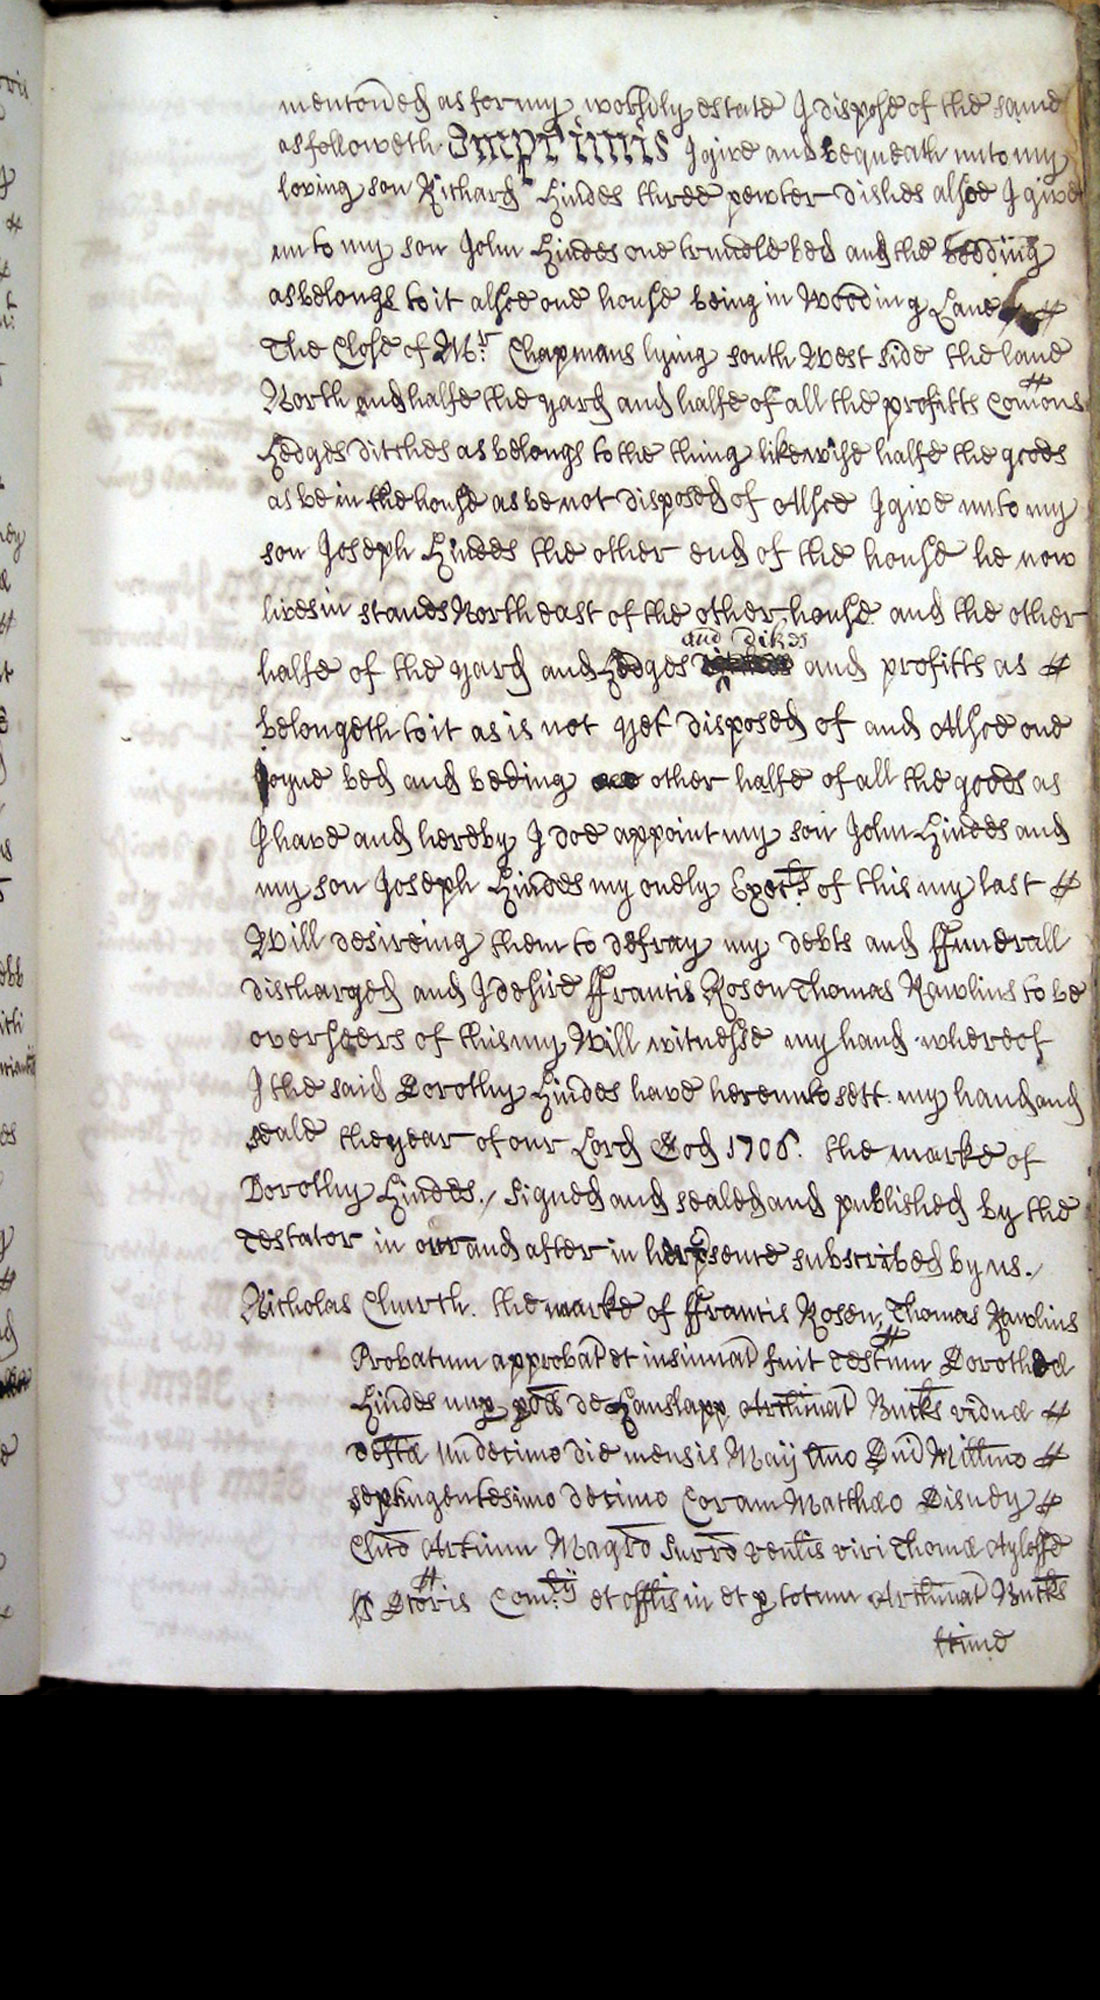 mentoned as for my worldly estate I dispose of the same
as followeth. Imprimis I give and bequeath unto my
loving son Richard Hindes three pewter dishes alsoe I give
unto my son John Hindes one trundle bed and the bedding
as belongs to it alsoe one house being in Wooding Lane
The Close of Mr. Chapmans lying south West side the lane
North and halfe the yard and halfe of all the profitts Comons
Hedges ditches as belongs to the thing likewise halfe the goods
as be in the house as be not disposed of Allsoe I give unto my
son Joseph Hindes the other end of the house he now
lives in stands North east of the other house and the other
and dikes
halfe of the yard and Hedges and profitts as
belongeth to it as is not yet disposed of and Allsoe one
bed and beding other halfe of all the goods as
I have and hereby I doe appoint my son John Hindes and
my son Joseph Hindes my onely Exectrs. of this my last
Will desireing them to defray my debts and ffunerall
discharged and I desire ffrancis Rosen Thomas Rawlins to be
overseers of this my Will witnesse my hand whereof
I the said Dorothy Hindes have hereunto sett my hand and
seale the year of our Lord God 1706. the marke of
Dorothy Hindes./ Signed and sealed and published by the
testator in our and after in her psence subscribed by us./
Nicholas Church. the marke of ffrancis Rosen, Thomas Rawlins
Probatum approbat et insinuat fuit testum Dorotheæ
Hindes nup poes de Hanslapp Archinat Bucks viduæ
deftæ undecimo die mensis Maij Ano Dni Millmo
septingentesimo decimo Coram Matthæo Disney
Clico Artium Magro Surro venlis viri Thomæ Ayloffe
Dtoris Comrij et offlis in et p totum Archinat Bucks